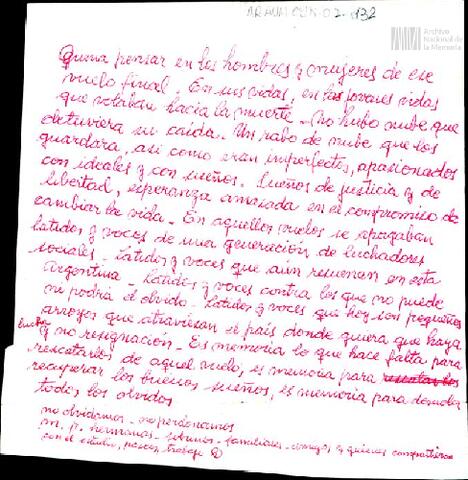 ARANM
02
132
Archivo
Nacional de
la Memoria
Quiero pensar en los hombres y mujeres de ese
vuelo final. En sus vidas, en las jovenes vidas
que volaban hacia la muerte. No hubo nube que
detuviera su caida. Un rabo de nube que los
guardara, asi como eran imperfectos, apasionados
con ideales y con sueños. Sueños de justicia y de
libertad, esperanza amasada en el compromiso de
cambiar la vida. En aquellos vuelos se apagaban
latidos y voces de una generación de luchadores
sociales. Latidos y voces que aún resuenan en esta
Argentina. Latidos y voces contra los que no puede
ni podria el olvido. Latidos y voces que hoy son pequeños
arroyos que atraviesan el país donde quiera que haya
lucha y no resignación. Es memoria lo que hace falta para
rescatarlos de aquel vuelo, es memoria para
recuperar los buenos sueños, es memoria para
todos los olvidos
no olvidamos - no perdonamos
m. p. hermanas - sobrinos - familiares - amigos y quienes compartieron
con él estudio, trabajo